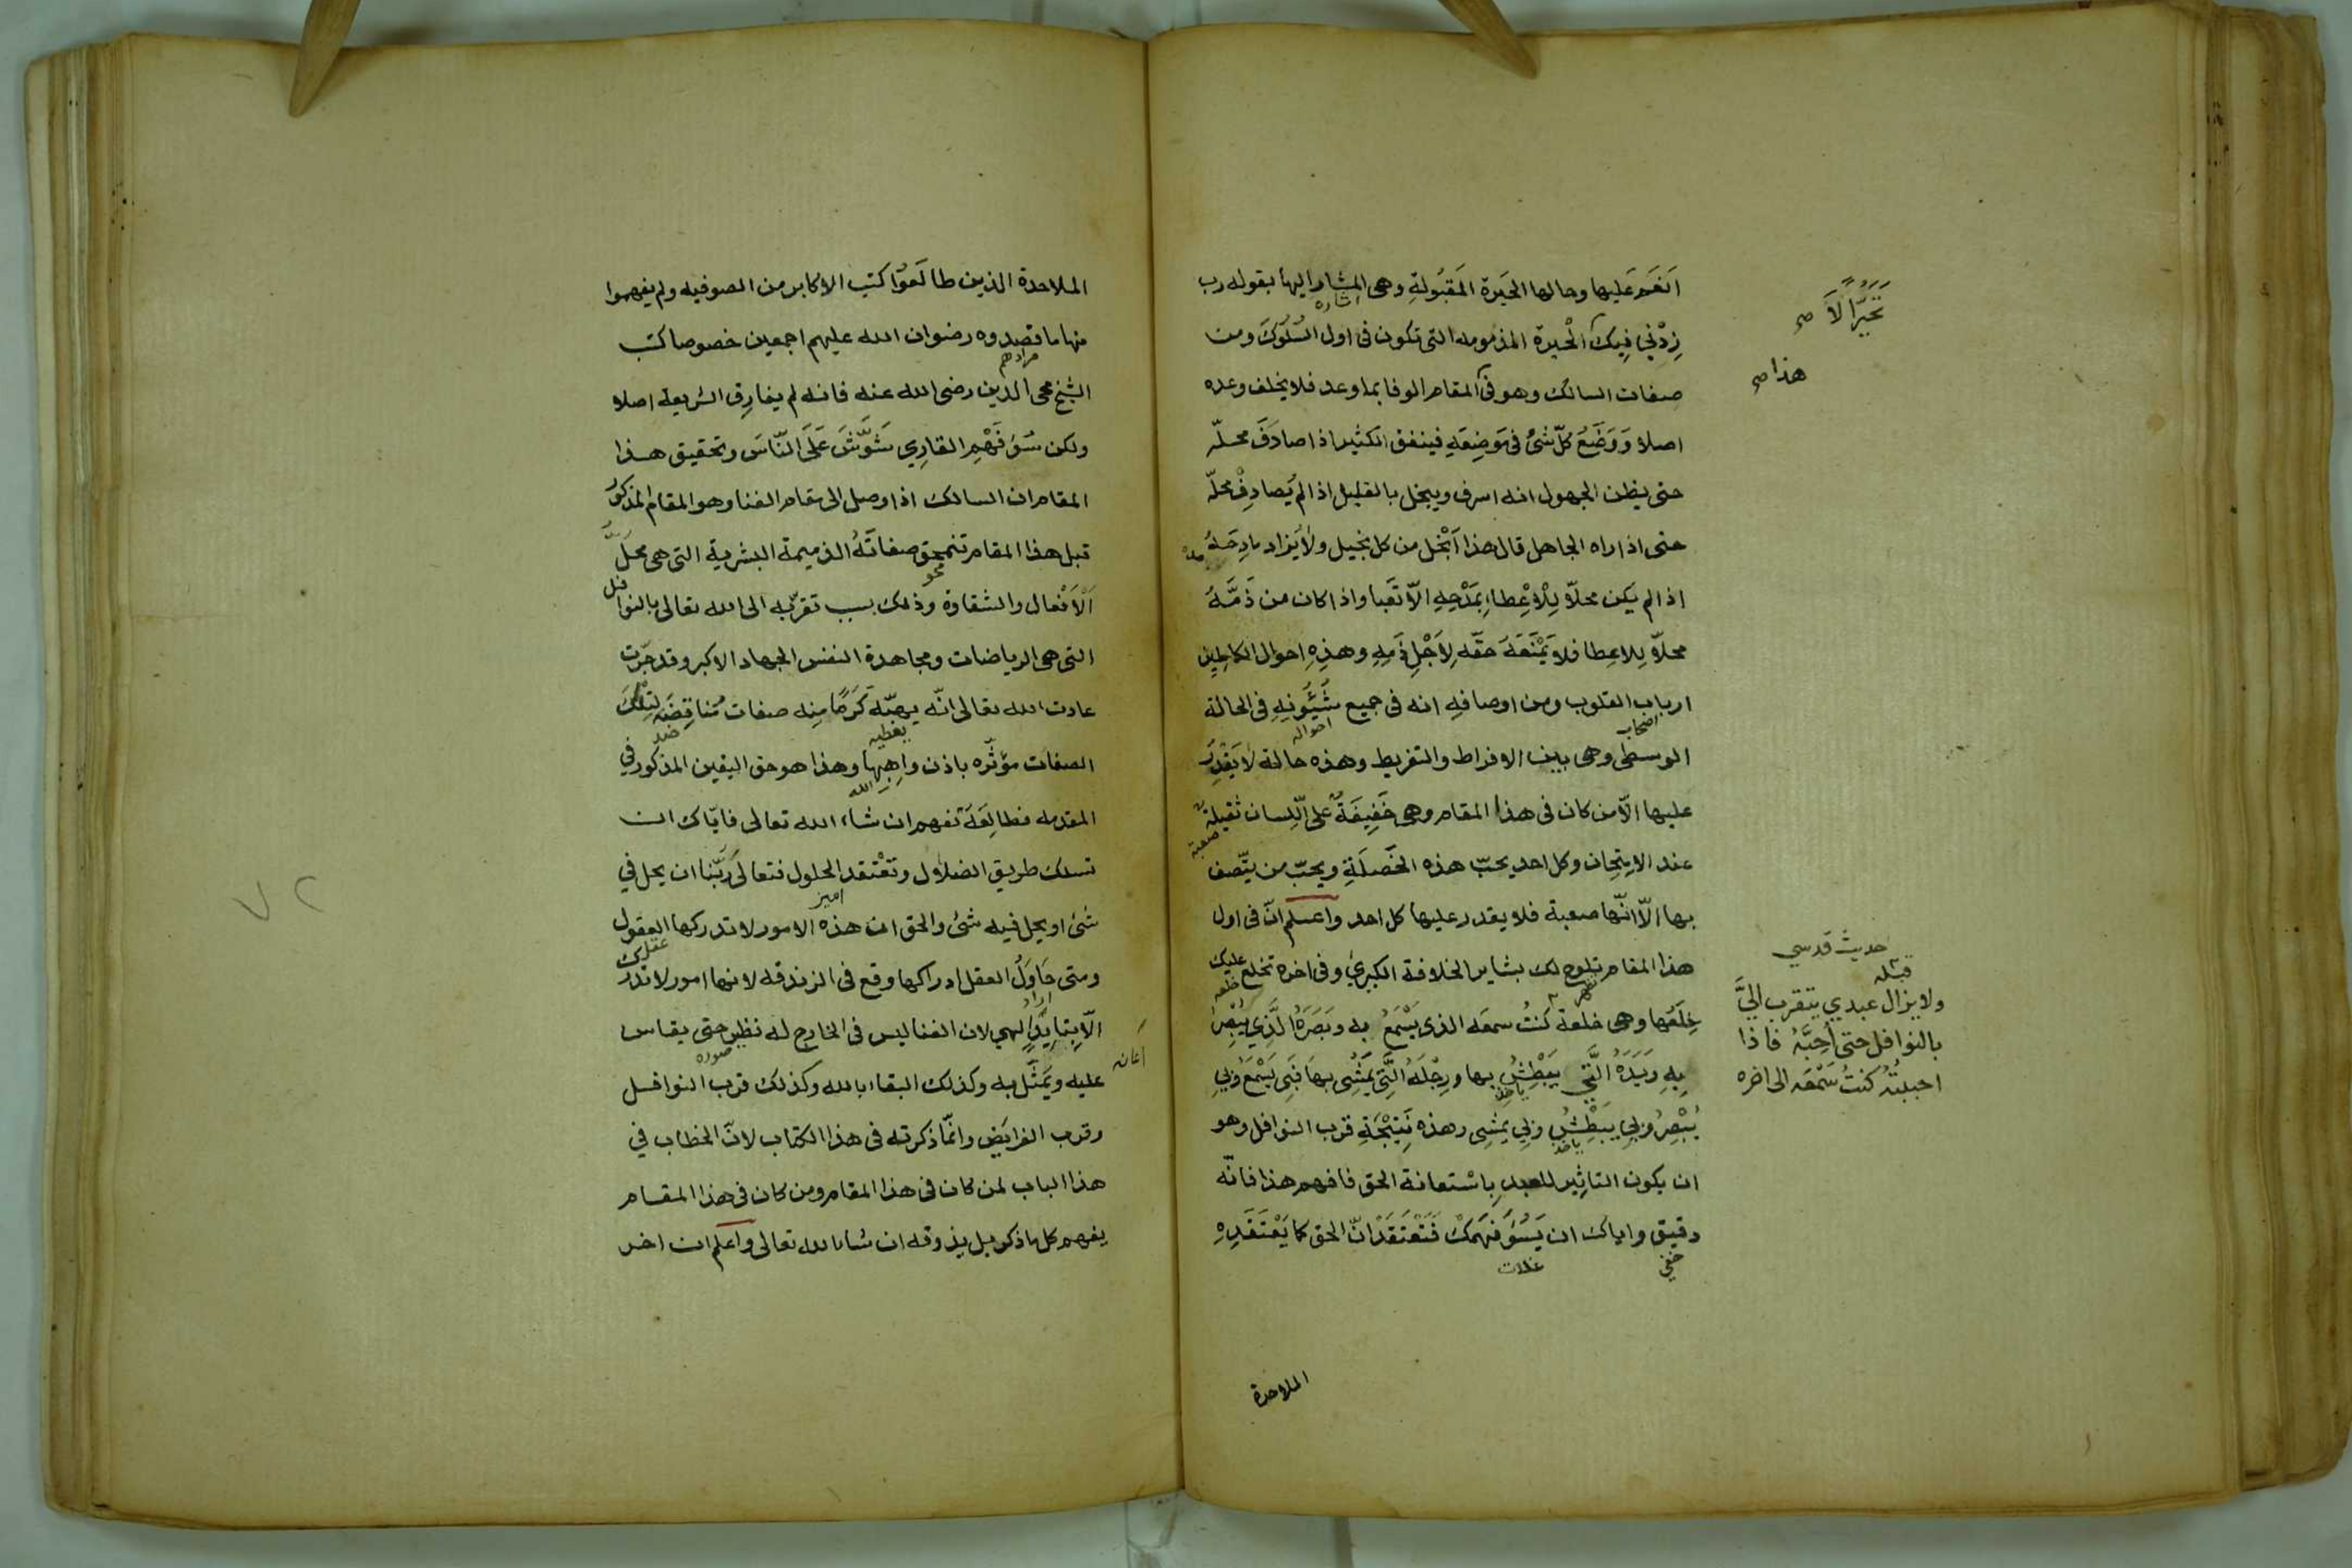 انعم عليها وحالها الحَيرة المَقبُولةِ وهى المشار اليها بقوله رب
اشاره
زِدْنِي فِيكَ الْحيرة المذمومه التى تكون فى اول السُّلُوكَ ومن
تَحَيُّراً لاَ صح
صفات السالك وهو فى المقام الوفا بما وعد فلا يخلف وعده
هذا صح
اصلا وَوَضَعُ كلّ شئ فى مَوضِعَهِ فينفق الكثير اذا صادَفَ محلّه
حتى يظن الجهول انه اسرف ويبخل بالقليل اذا لم يُصادِفْ محلّه
حتى اذا راه الجاهل قال هذا اَبْخَل من كل بخيل ولا يَزاد مادِحَهُ
اذا لم يكن محلاّ لِلْاعِْطاء بِمَدْحِهِ الاّ تَعَبا واذا كان من ذَمَّهُ
محلاّ لِلاعِطا فلا يَمْنَعَهَ حَقّه لِاَجْلِ ذَمِهِ وهذِهِ احوال الكامِلِين
ارباب القلوب ومن اوصافِهِ انه فى جميع شُئُونِهِ فى الحالة
اصحاب
احواله
الوسطى وهى بين الافراط والتفريط وهذه حالة لا يَقْدِرَ
عليها الاّ من كان فى هذا المقام وهى خَفِيفَةٌ على اللِّسان ثقيلة
صعبة
عند الامتِحان وكل احد يحبّ هذه الخَصلَةِ ويحبّ من يتّصف
بها الاّ انّها صعبة فلا يقدر عليها كل احد واعلم انّ فى اول
هذا المقام تلوح لك بشاير الخلافة الكبرىٰ وفى اخره تخلع عليك
تظهر
خلعه
خِلَعُها وهى خلعة كُنتُ سمعَه الذى يَسْمَعُ به وبَصَرَهُ الَّذِي يُبْصِرُ
بِهِ وَيَدَهُ الَّتِي يَبْطِشُ بها ورِجْلَهُ الَّتِي يَمْشِى بها فَبِى يَسْمَعُ وَبِي
ياخذ
يُبْصِرُ وَبِي يَبْطِشُ وَبِي يمْشِى وهذه نَتِيْجَةِ قرب النوافل وهو
ياخذ
ان يكون التاثِير للعبدِ بِاسْتعانة الحق فافهم هذا فانّه
دقيق واياك ان يَسُوَ فَهَمَكْ فَتَعْتَقَدْ انّ الحق كما يَعْتَقَدِهِ
خفي
غلات
حديث قدسي
قبله
ولا يزال عبدي يتقرب اليَّ
بالنوافل حتى اُحِبَّهُ فاذا
احببتُهُ كنتُ سَمْعَه الى اخره
الملاحدة
الملاحدة الذين طالَعُوا كتب الاكابر من الصوفيه ولم يفهموا
منها ما قصدوه رضوان الله عليهم اجمعين خصوصا كتب
مرادهم
الشيخ محى الدين رضى الله عنه فانه لم يفارِق الشريعة اصلا
ولكن سُوَ فَهْمِ القارِي شَوَّشَ عَلَى النّاسَ وتحقيق هذا
المقام ان السالك اذا وصل الى مقام الفنا وهو المقام المذكور
قبل هذا المقام تنمحق صفاتَهُ الذميمة البشرية التى هى محلّ
محو
اَلاَفْعال والشقاوة وذلك بسبب تقرّبه الى الله تعالى بالنوافل
التى هى الرياضات ومجاهدة النفس الجهاد الاكبر وقد جَرَت
عادت الله تعالى انّه يهبّه كَرَمًا مِنِه صفات مُناقِضَه لِتِلْكَ
يعطيه
ضد
الصفات مؤثّره باذن واهِبِها وهذا هو حق اليقين المذكور في
الله
المقدمه فطالِعَهَ تفهم ان شاء الله تعالى فايّاك ان
تسلك طريق الضلال وتَعْتقد الحلول فتعالىَ رَبّنا ان يحل في
شئ او يحل فيه شئ والحق ان هذه الامور لا تدركها العقول
ومتى حَاوَلُ العقل ادراكها وقع فى الزندقه لانها امور لا تدرك
اراد
الاّ بِتايِيدٍ الهي لان الفنا ليس فى الخارج له نظير حتى يقاس
اعان
عليه ويَمَثَّل به وكذلك البقاء بالله وكذلك قرب النوافل
صوره
وقرب الفرايَض وانّما ذكرته فى هذا الكتاب لانّ الخطاب في
هذا الباب لمن كان فى هذا المقام ومن كان فى هذا المقام
يفهم كل ما ذكر بل يذوقه ان شا الله تعالى واعلم ان اخر
٧٢